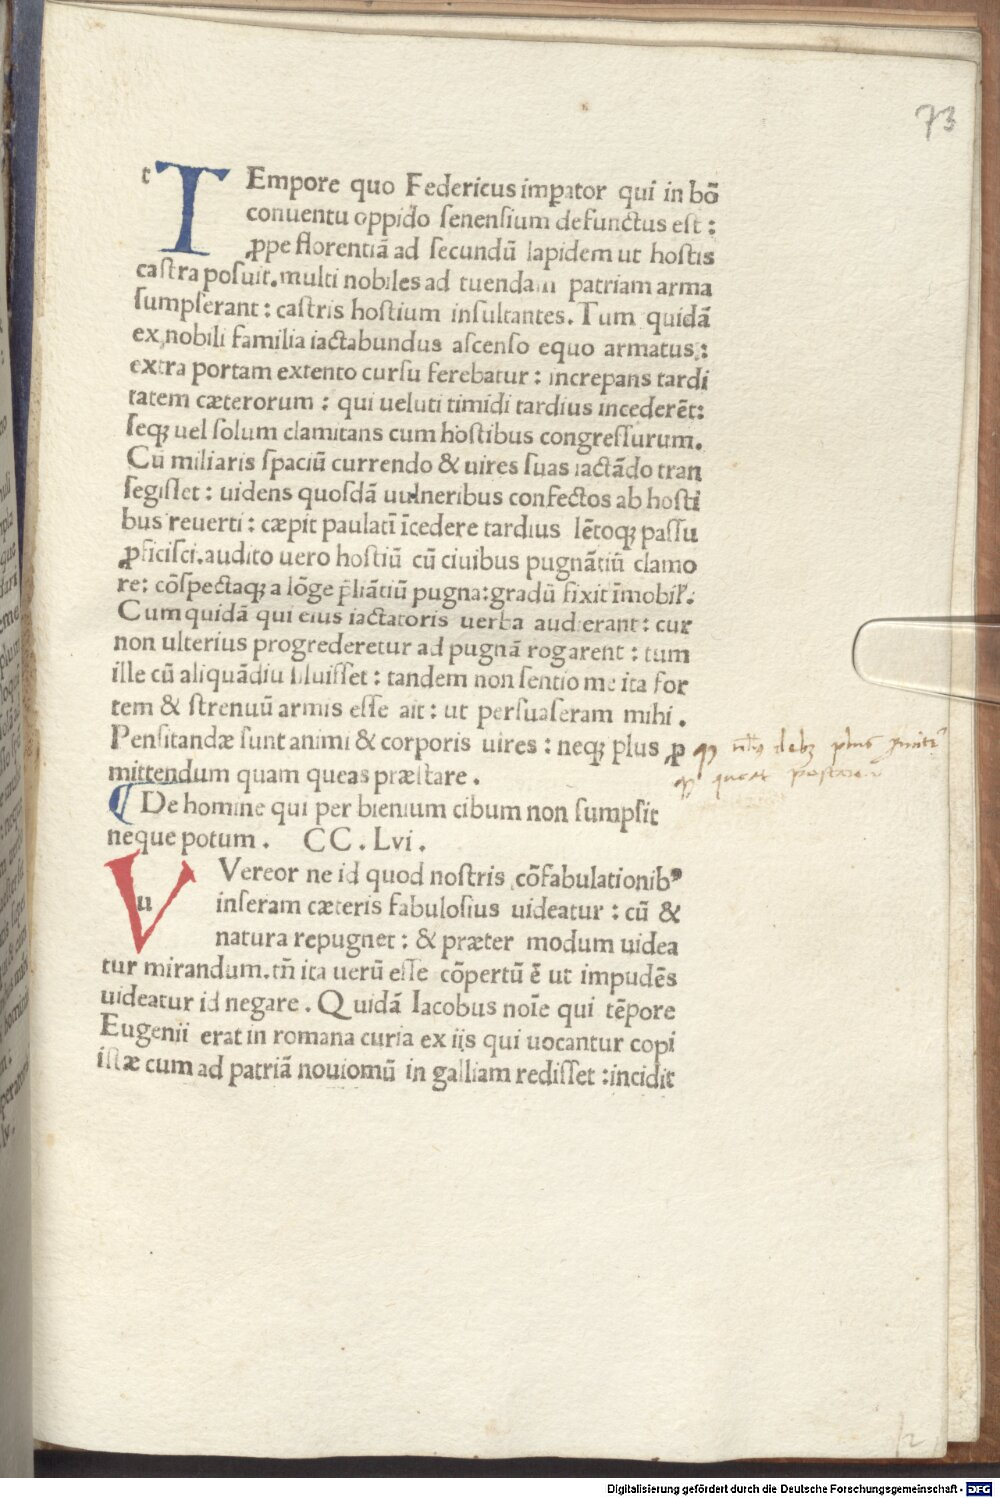 73
t TEmpore quo Federicus imꝑator qui in bõ
conuentu oppido senensium defunctus est :
ꝓpe florentiã ad secundũ lapidem ut hostis
castra posuit. multi nobiles ad tuendam patriam arma
sumpserant : castris hostium insultantes. Tum quidã
ex nobili familia iactabundus ascenso equo armatus :
extra portam extento cursu ferebatur : increpans tardi
tatem cæterorum : qui ueluti timidi tardius incederẽt:
seqꝫ uel solum clamitans cum hostibus congressurum.
Cũ miliaris spaciũ currendo & uires suas iactãdo tran
segisset : uidens quosdã uulneribus confectos ab hosti
bus reuerti : cæpit paulatĩ ĩcedere tardius lẽtoqꝫ passu
ꝓficisci. audito uero hostiũ cũ ciuibus pugnãtiũ clamo
re: cõspectaqꝫ a lõge p̃liãtiũ pugna: gradũ fixit ĩmobil'.
Cum quidã qui eius iactatoris uerba audierant : cur
non ulterius progrederetur ad pugnã rogarent : tum
ille cũ aliquãdiu siluisset : tandem non sentio me ita for
tem & strenuũ armis esse ait : ut persuaseram mihi .
Pensitandæ sunt animi & corporis uires : neqꝫ plus ꝓ
mittendum quam queas præstare .
plus
¶ De homine qui per bienium cibum non sumpsit
neque potum . CC . Lvi .
u VVereor ne id quod nostris cõfabulationibꝰ
inseram cæteris fabulosius uideatur : cũ &
natura repugnet : & præter modum uidea
tur mirandum. tñ ita uerũ esse cõpertũ ẽ ut impudẽs
uideatur id negare . Quidã Iacobus noĩe qui tẽpore
Eugenii erat in romana curia ex iis qui uocantur copi
istæ cum ad patriã nouiomũ in galliam redisset : incidit
Digitalisierung gefördert durch die Deutsche Forschungsgemeinschaft - DFG